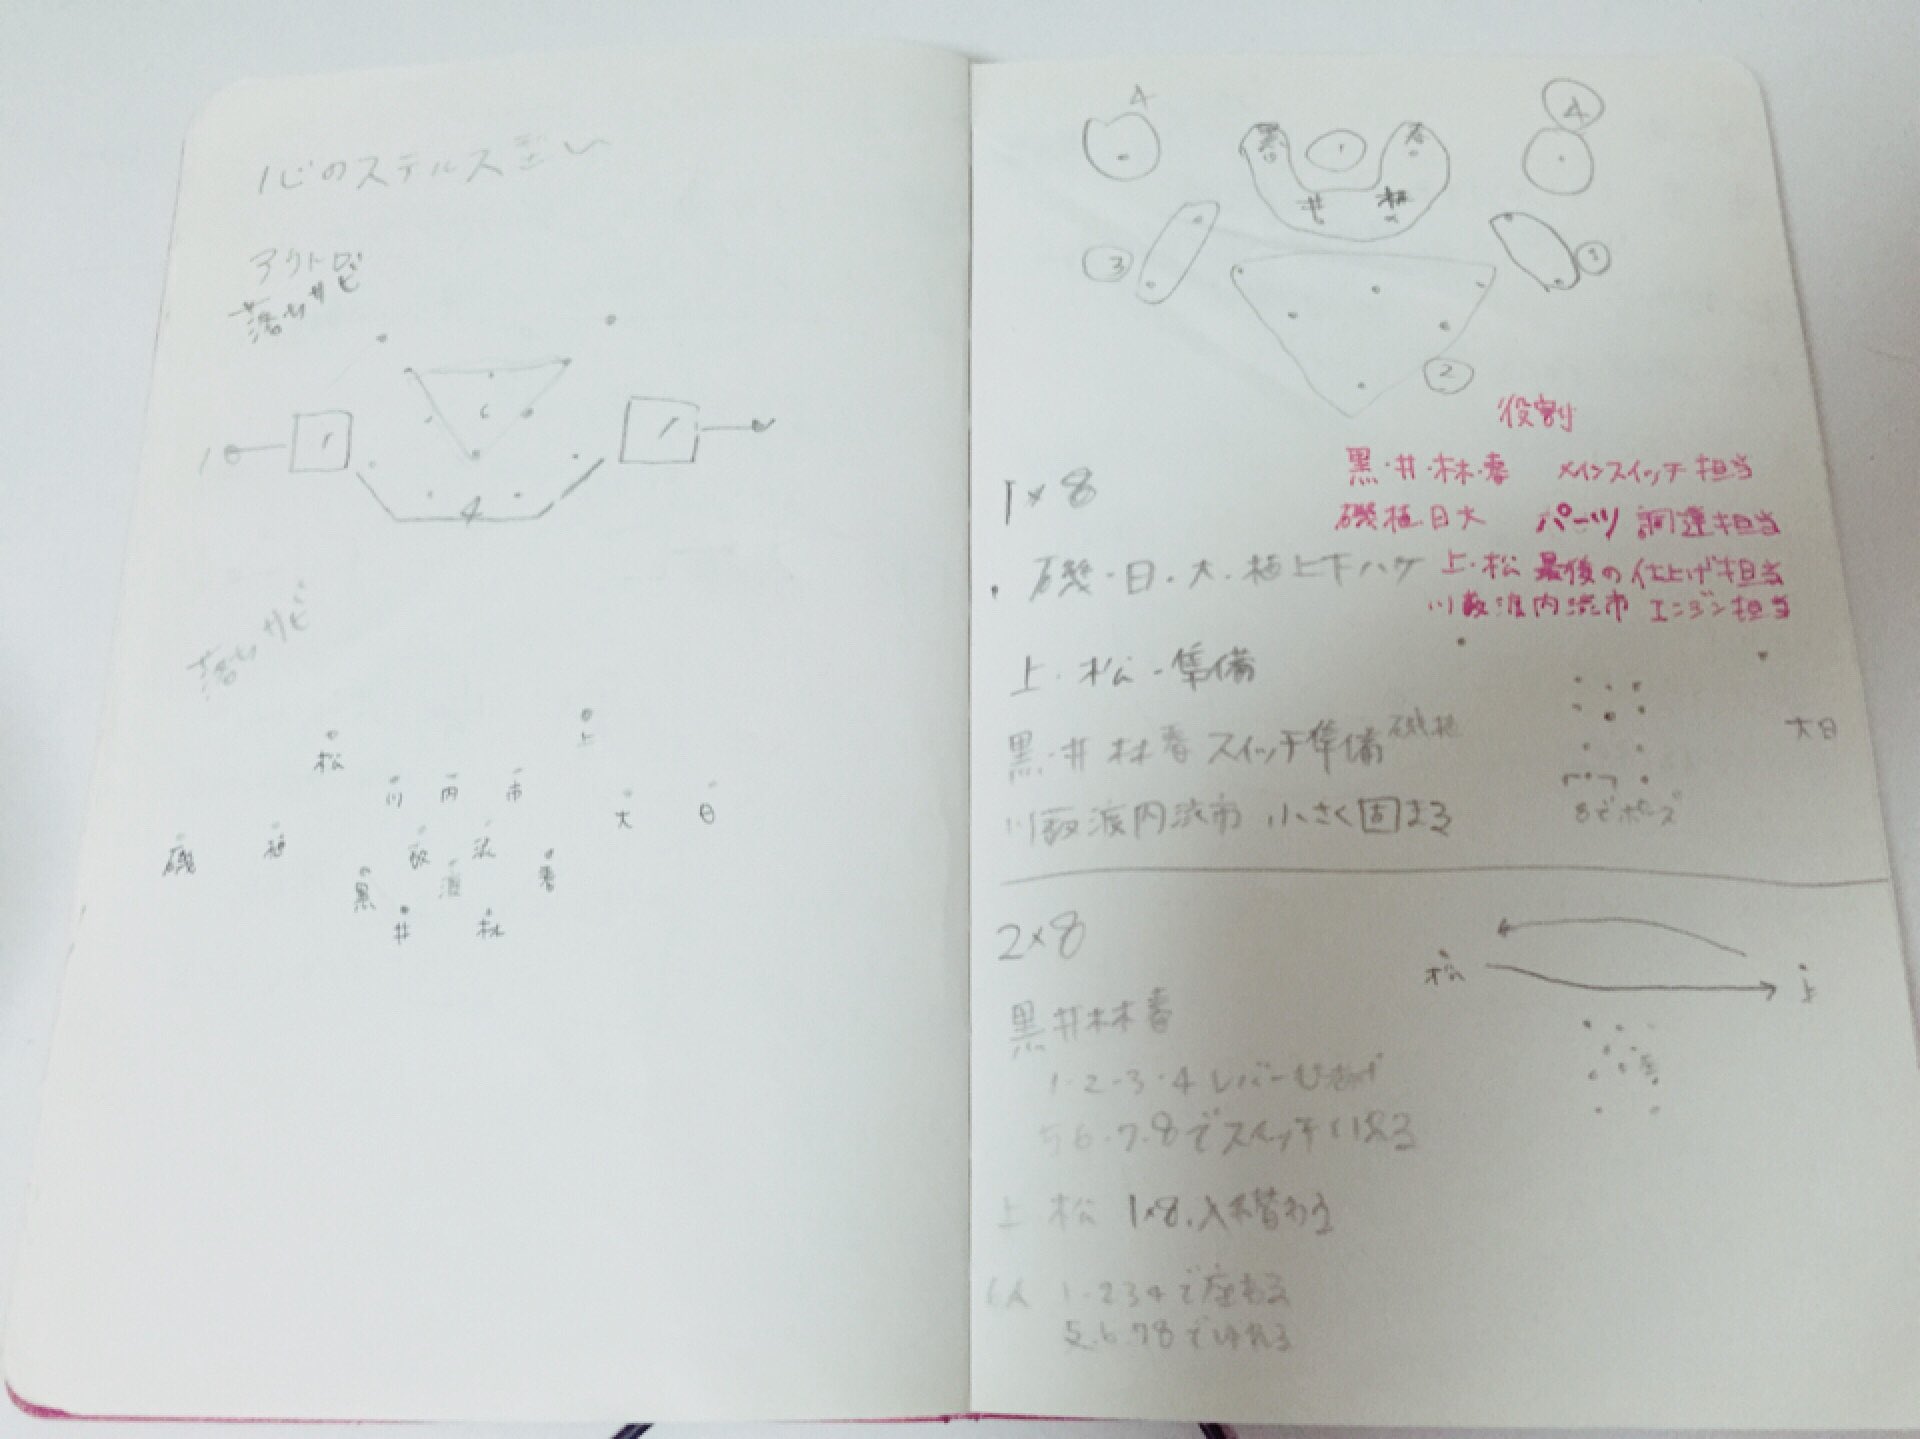 心のステルス
アウトロ
落ちサビ
1
6
1
4
落ちサビ
上
松
川 内 市
大 日
磯 植 藪 渋
黒 渡 春
井 林
4
4
黒
1
春
井 林
3
3
2
役割
黒・井・林・春 メインスイッチ担当
磯植日大 パーツ調達担当
上・松 最後の仕上げ担当
川藪渡内渋市 エンジン担当
1×8
・磯・日・大・植上下ハケ
上・松-準備
黒・井 林春 スイッチ準備
磯植
大日
川藪渡内渋市 小さく固まる
8でポーズ
2×8
松
上
黒井林春
1-2-3-4 レバー
5 6・7・8でスイッチ入れる
上・松 1×8.入れ替わる
6人 1-234で座わる
5.6.78でゆれる